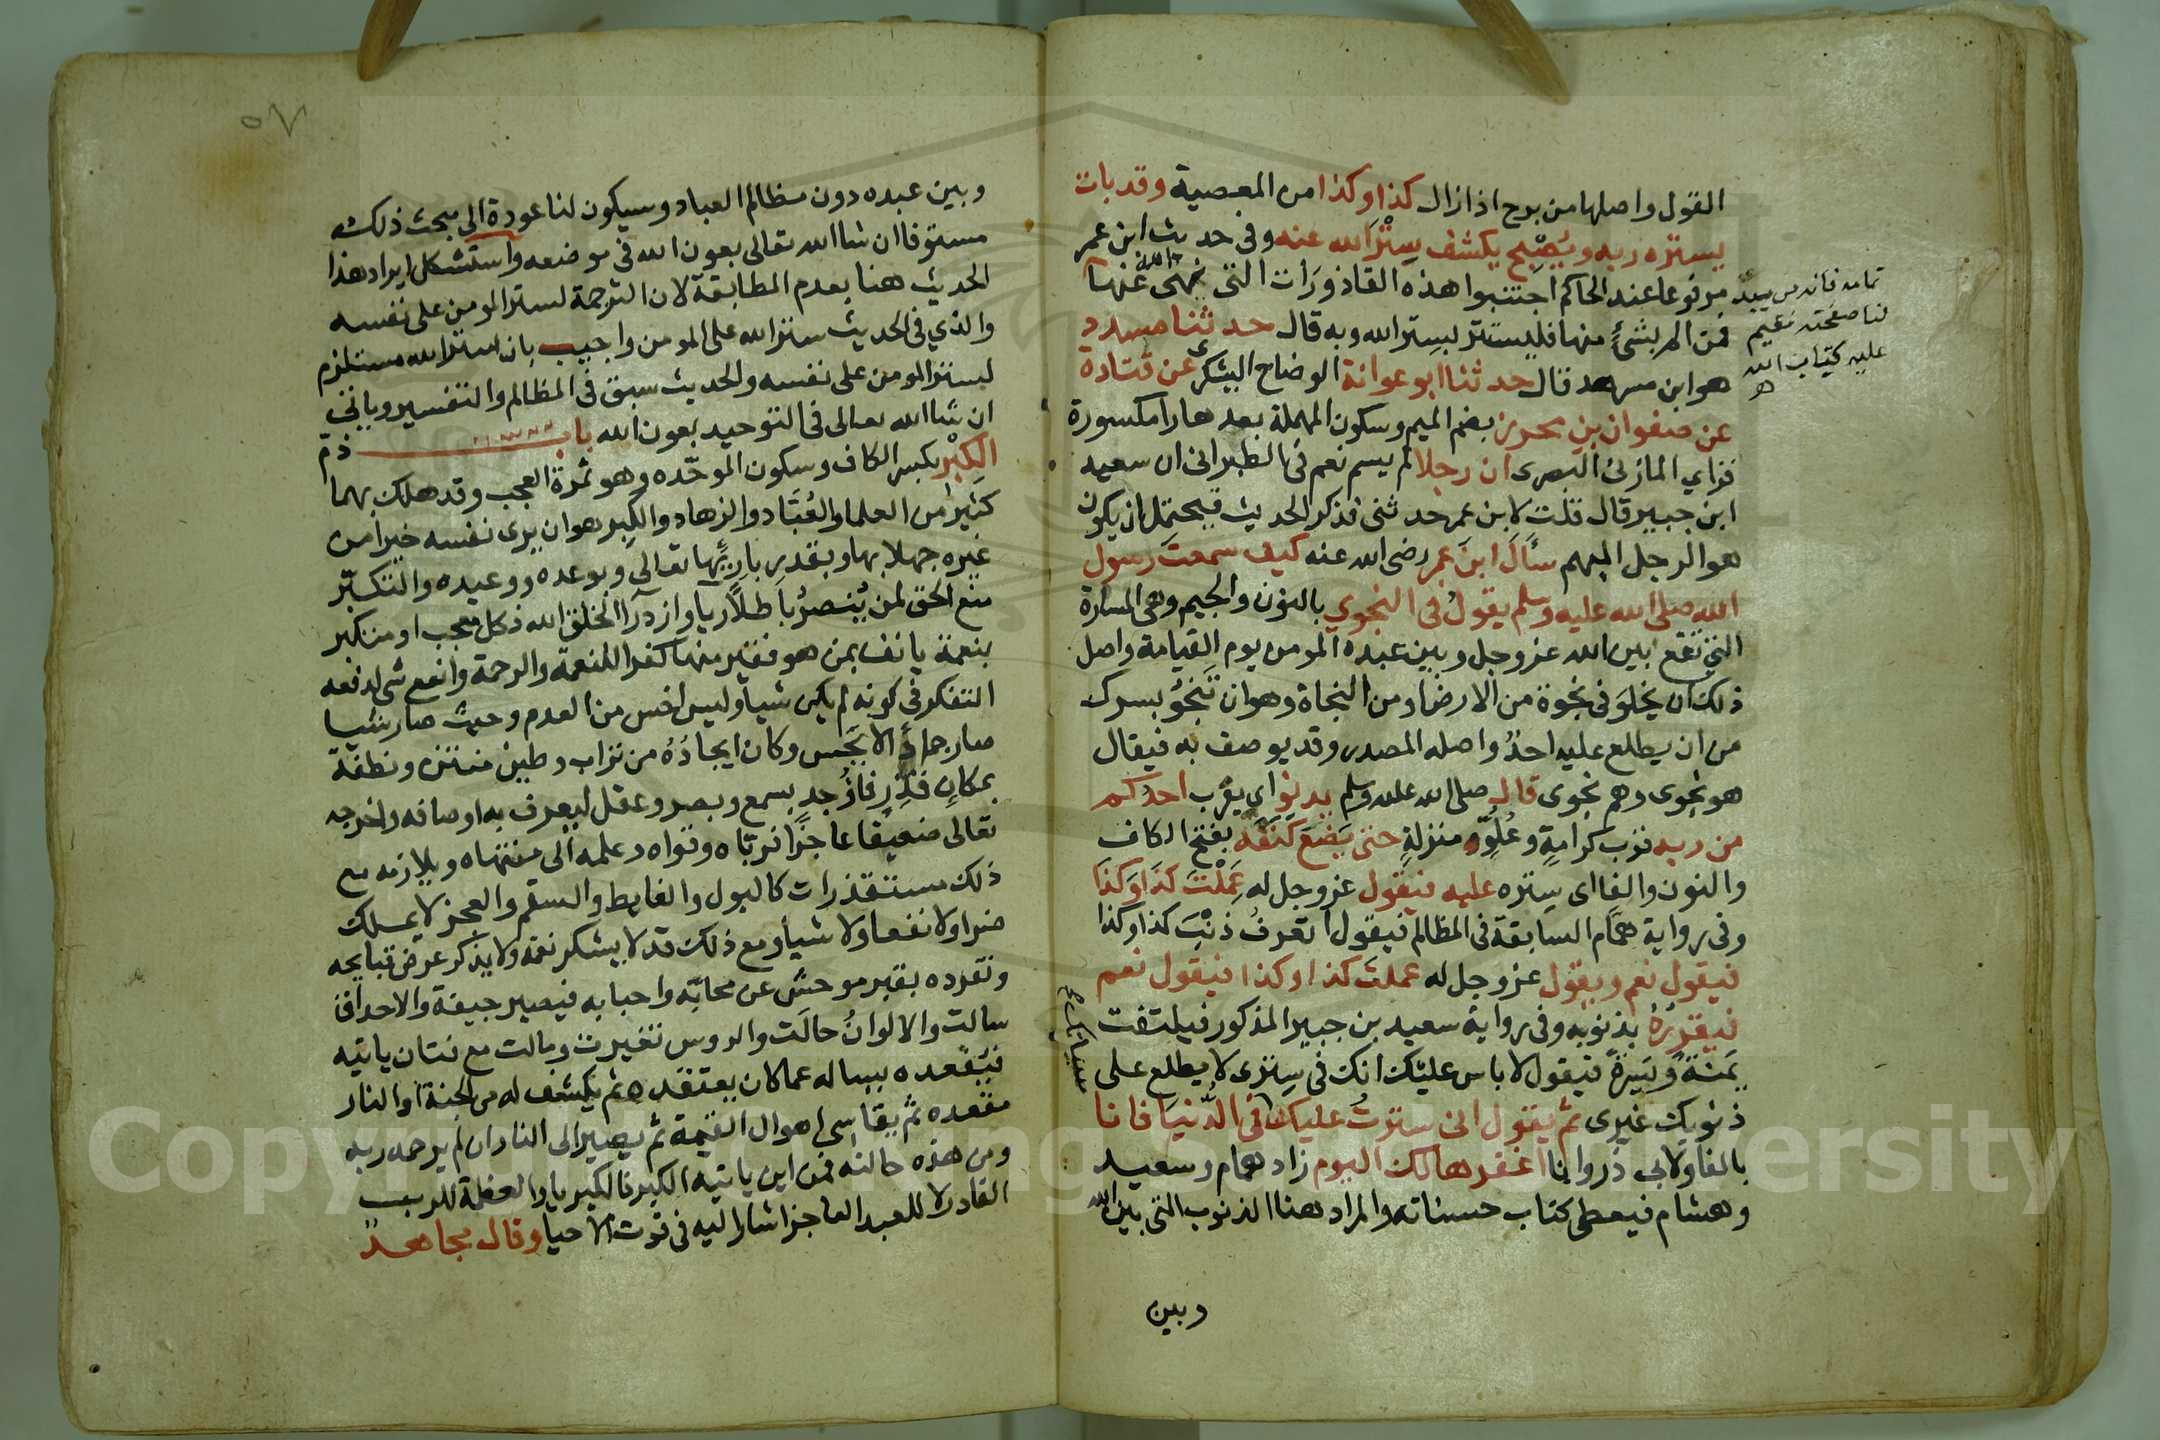 القول واصلها من برح اذا زال كذا وكذا من المعصية وقد بات
يستره ربه ويُصْبِح يكشف سِتْرَ الله عنه وفى حديث ابن عمر
مرفوعا عند الحاكم اجتنبوا هذه القاذورَات التى نهى الله عنها
فمن الم بشئ منها فليستتر بستر الله وبه قال حدثنا مسدد
هو ابن مسرهد قال حدثنا ابو عوانة الوضاح اليشكرى عن قتادة
عن صفوان بن محرز بضم الميم وسكون المهملة بعدها را مكسورة
فزاي المازنى البصرى ان رجلا لم يسم نعم فى الطبرانى ان سعيد
ابن جبير قال قلت لابن عمر حدثنى فذكر الحديث فيحتمل ان يكون
هو الرجل المبهم سأَلَ ابنَ عمر رضى الله عنه كيف سمعتَ رسول
الله صلى الله عليه وسلم يقولُ فى النجوي بالنون والجيم وهى المسارة
التي تقع بين الله عز وجل وبين عبده المومن يوم القيامة واصل
ذلك ان يخلوَ فى نجوة من الارض او من النجاة وهو ان تَنجُوَ بسرك
من ان يطلع عليه احدُ واصله المصدر وقد يوصف به فيقال
هو نجوى وهم نجوى قال صلى الله عليه وسلم يدنو اي يقرب احدُكم
من ربه قرب كرامةٍ وعُلوِّ منزلةٍ حتى يَضَعَ كَنَفَه بفتح الكاف
والنون والفا اى ستره عليه فيقول عز وجل له عَمِلْتَ كذا وكذا
وفى رواية همَّام السابقة فى المظالم فيقول أتعرفُ ذنْبَ كذا وكذا
فيقول نعم ويقول عز وجل له عملتَ كذا وكذا فيقول نعم
فيقررُهُ بذنوبه وفى رواية سعيد بن جبير المذكور فيلتفت
يَمنةً ويَسرةً فيقول لا باس عليك انك فى سِترى لا يطلع على
ذنوبك غيرى ثم يقول انى سترتُ عليك فى الدُّنيَا فانا
بالفا ولابى ذر وانا اغفرها لك اليوم زاد همام وسعيد
وهشام فيعطى كتاب حسناته والمراد هنا الذنوب التى بين الله
وبين
وبين عبده دون مظالم العباد وسيكون لنا عودة الى مبحث ذلك
مستوفا ان شا الله تعالى بعون الله فى موضعه واستشكل ايراد هذا
الحديث هنا بعدم المطابقة لان الترجمة لستر المومن على نفسه
والذي فى الحديث ستر الله على المومن واجيب بان ستر الله مستلزم
لستر المومن على نفسه والحديث سبق فى المظالم والتفسير وياتى
ان شا الله تعالى فى التوحيد بعون الله باب ذمّ
الكِبْر بكسر الكاف وسكون الموحّده وهو ثمرة العجب وقد هلك بهما
كثير من العلما والعُبَّاد والزهاد والكِبر هو ان يرى نفسه خيرا من
غيره جهلا بها وبقدر بارئها تعالى وبوعده ووعيده والتكبّر
منع الحق لمن يُبْصرُ باطلاً ريا وازدرآ لخلق الله فكل معجب او متكبر
بنعمة يانف بمن هو فقير منها كفر المنعمة والرحمة وانفع شى لدفعه
التفكر فى كونه لم يكن شيأ وليس اخس من العدم وحيث صار شيا
صار جماداً لا يحس وكان ايجادُهُ من تراب وطين منتن ونطفة
بمكان قذرٍ فاوُجد بسمع وبصر وعقل ليعرف به اوصافه واخرجه
تعالى ضعيفا عاجزًا فرباه وقواه وعلمه الى منتهاه ويلازمه مع
ذلك مستقذرات كالبول والغايط والسقم والعجز لا يملك
ضرا ولا نفعا ولا شيأ ومع ذلك قد لا يشكر نعمه ولا يذكر عرض قبايحه
وتفرده بقبر موحش عن محابّه واحبابه فيصير جيفة والاحداق
سالت والالوانُ حالَت والروس تغيرت ومالت مع فتان ياتيه
فيُقعده يساله عما كان يعتقده ثم يكشف له من الجنة او النار
مقعده ثم يقاسى اهوال القيمة ثم يصير الى النار ان لم يرحمه ربه
ومن هذه حالته فمن اين ياتيه الكبر فالكبريا والعظمة للرب
القادر لا للعبد العاجز اشار اليه فى قوت الاحيا وقال مجاهد
٥٧
Copyright © King Saud University